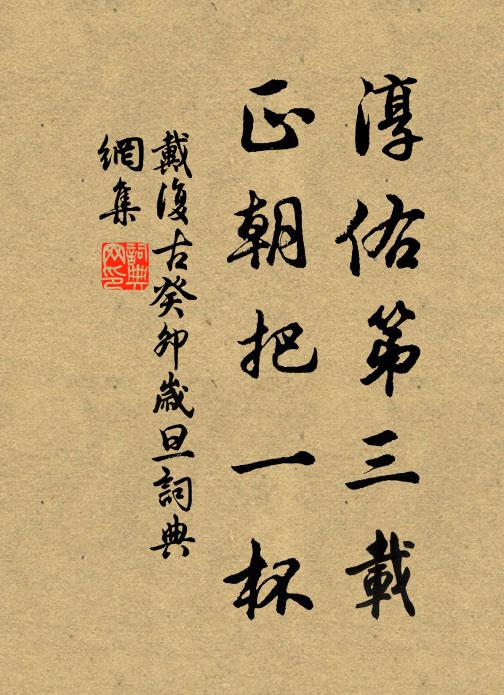 淳佑第三載
正朝把一杯
戴復古癸卯歲旦詞典
網集
詞典網印